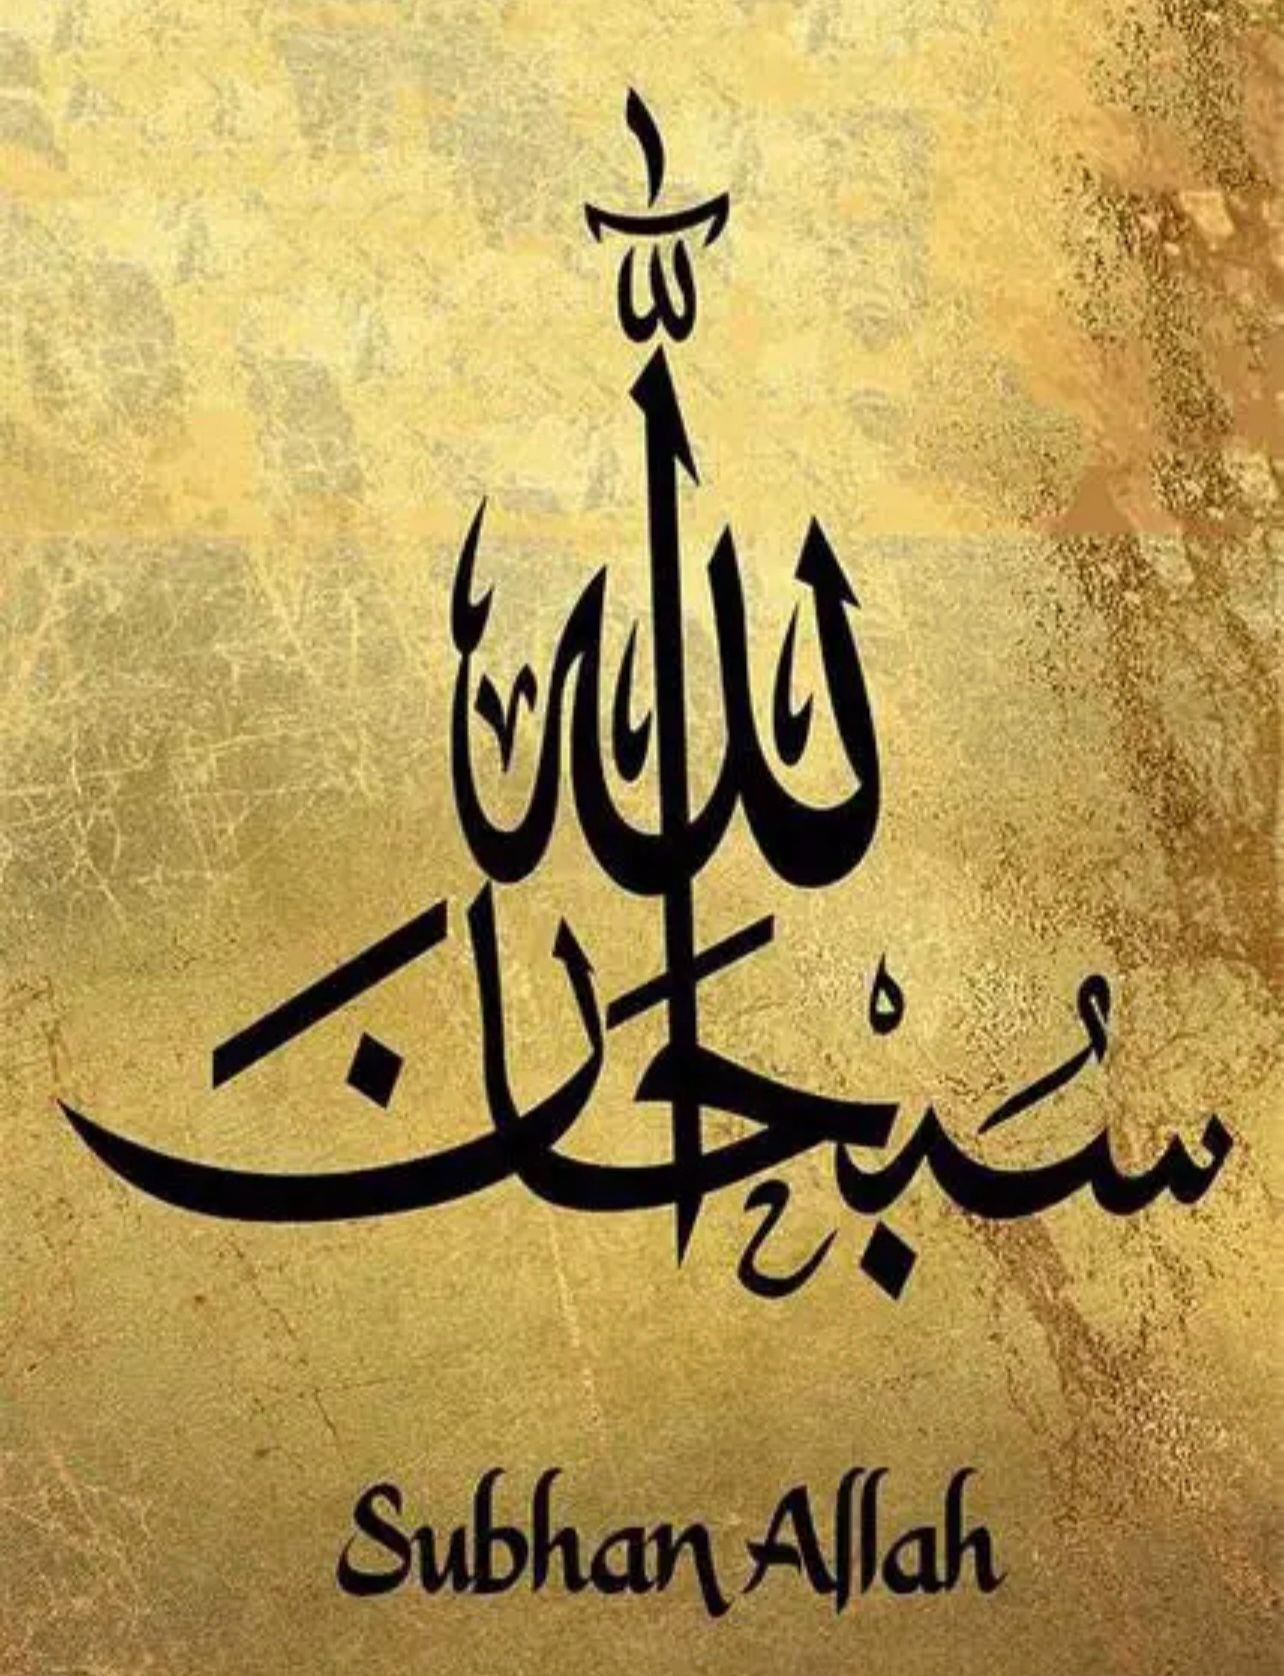 سُبْحَانَ الله
Subhan Allah